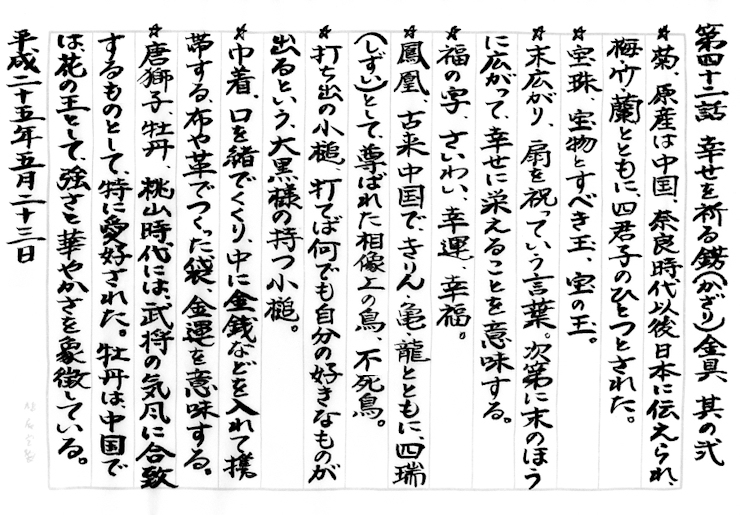 第四十二話 幸せを祈る錺(かざり)金具、其の弐
☆菊、原産は中国、奈良時代以後日本に伝えられ、
梅・竹・蘭とともに、四君子のひとつとされた。
☆宝珠、宝物とすべき玉、宝の玉。
☆末広がり、扇を祝っていう言葉。次第に末のほう
に広がって、幸せに栄えることを意味する。
☆福の字、さいわい、幸運、幸福。
☆鳳凰、古来中国で、きりん・亀・龍とともに、四瑞
(しずい)として、尊ばれた相像上の鳥、不死鳥。
☆打ち出の小槌、打てば何でも自分の好きなものが
出るという、大黒様の持つ小槌。
☆巾着、口を緒でくくり、中に金銭などを入れて携
帯する、布や革でつくった袋、金運を意味する。
☆唐獅子、牡丹、桃山時代には、武将の気風に合致
するものとして、特に愛好された。牡丹は中国で
は、花の王として、強さと華やかさを象徴している。
平成二十五年五月二十三日